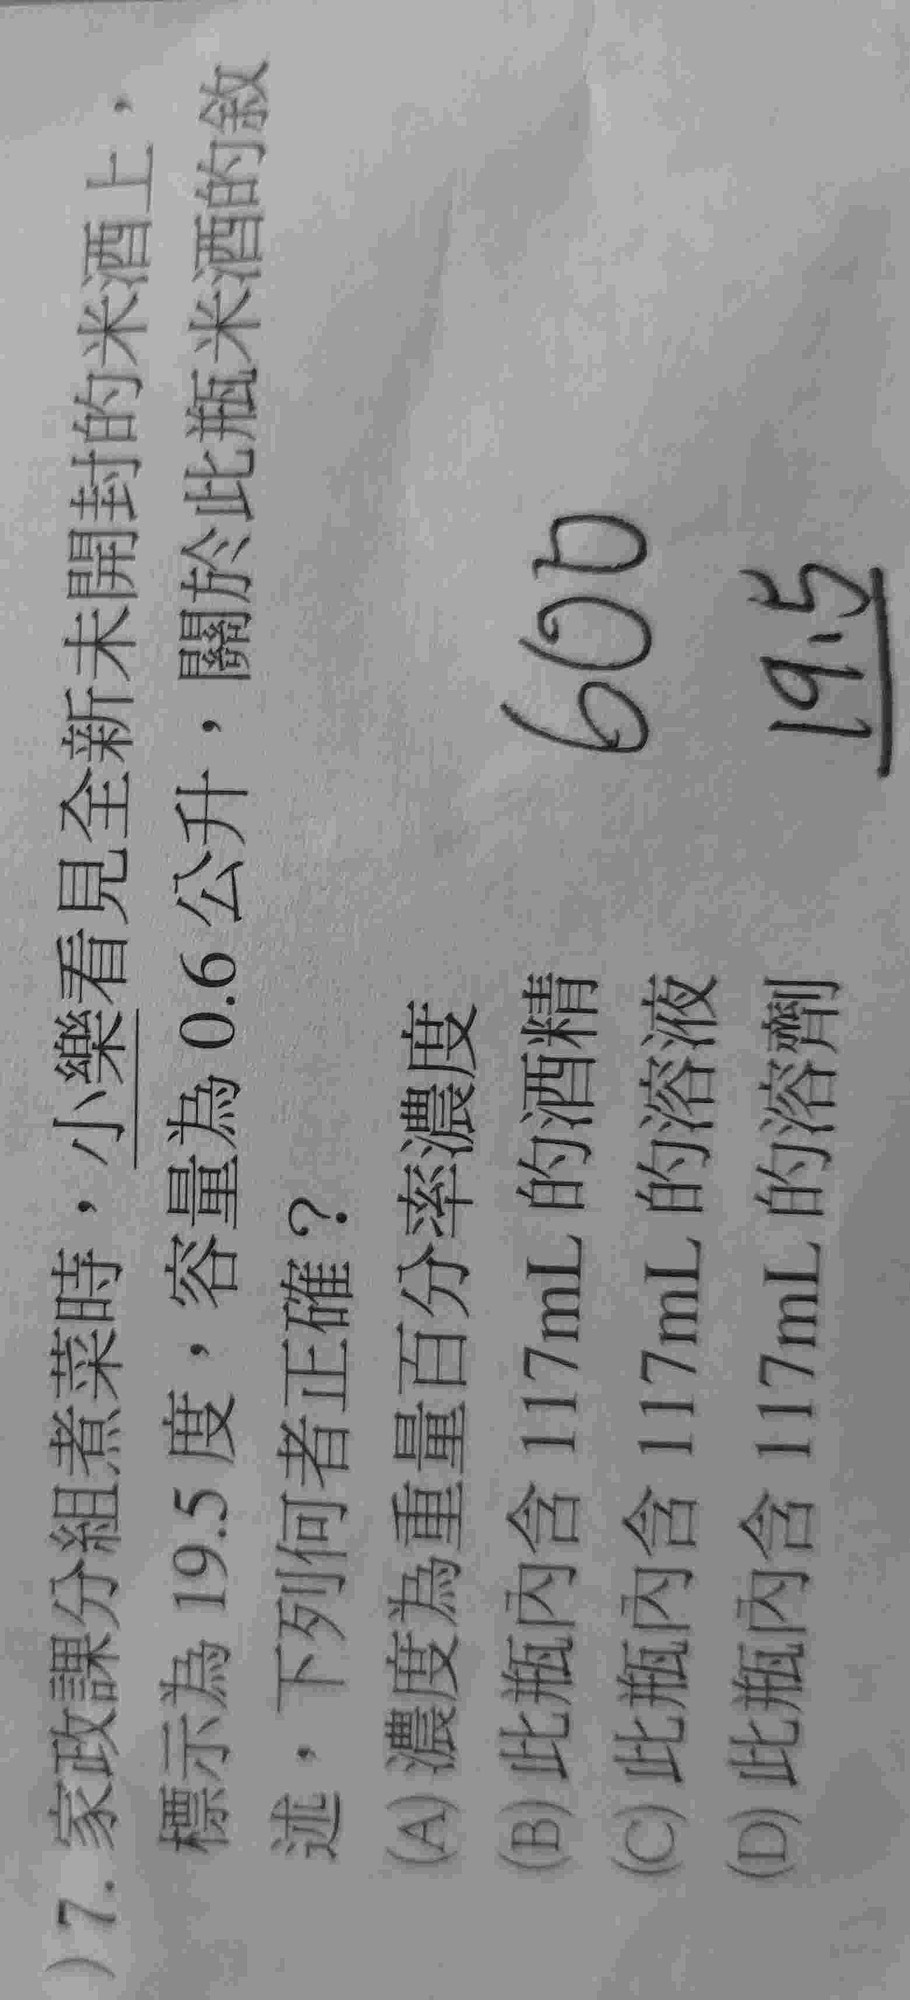 )7. 家政課分組煮菜時，小樂看見全新未開封的米酒上，
標示為 19.5 度，容量為 0.6 公升，關於此瓶米酒的敘
述，下列何者正確？
(A) 濃度為重量百分率濃度
(B) 此瓶內含 117mL 的酒精
(C) 此瓶內含 117mL 的溶液
(D) 此瓶內含 117mL 的溶劑
600
19.5